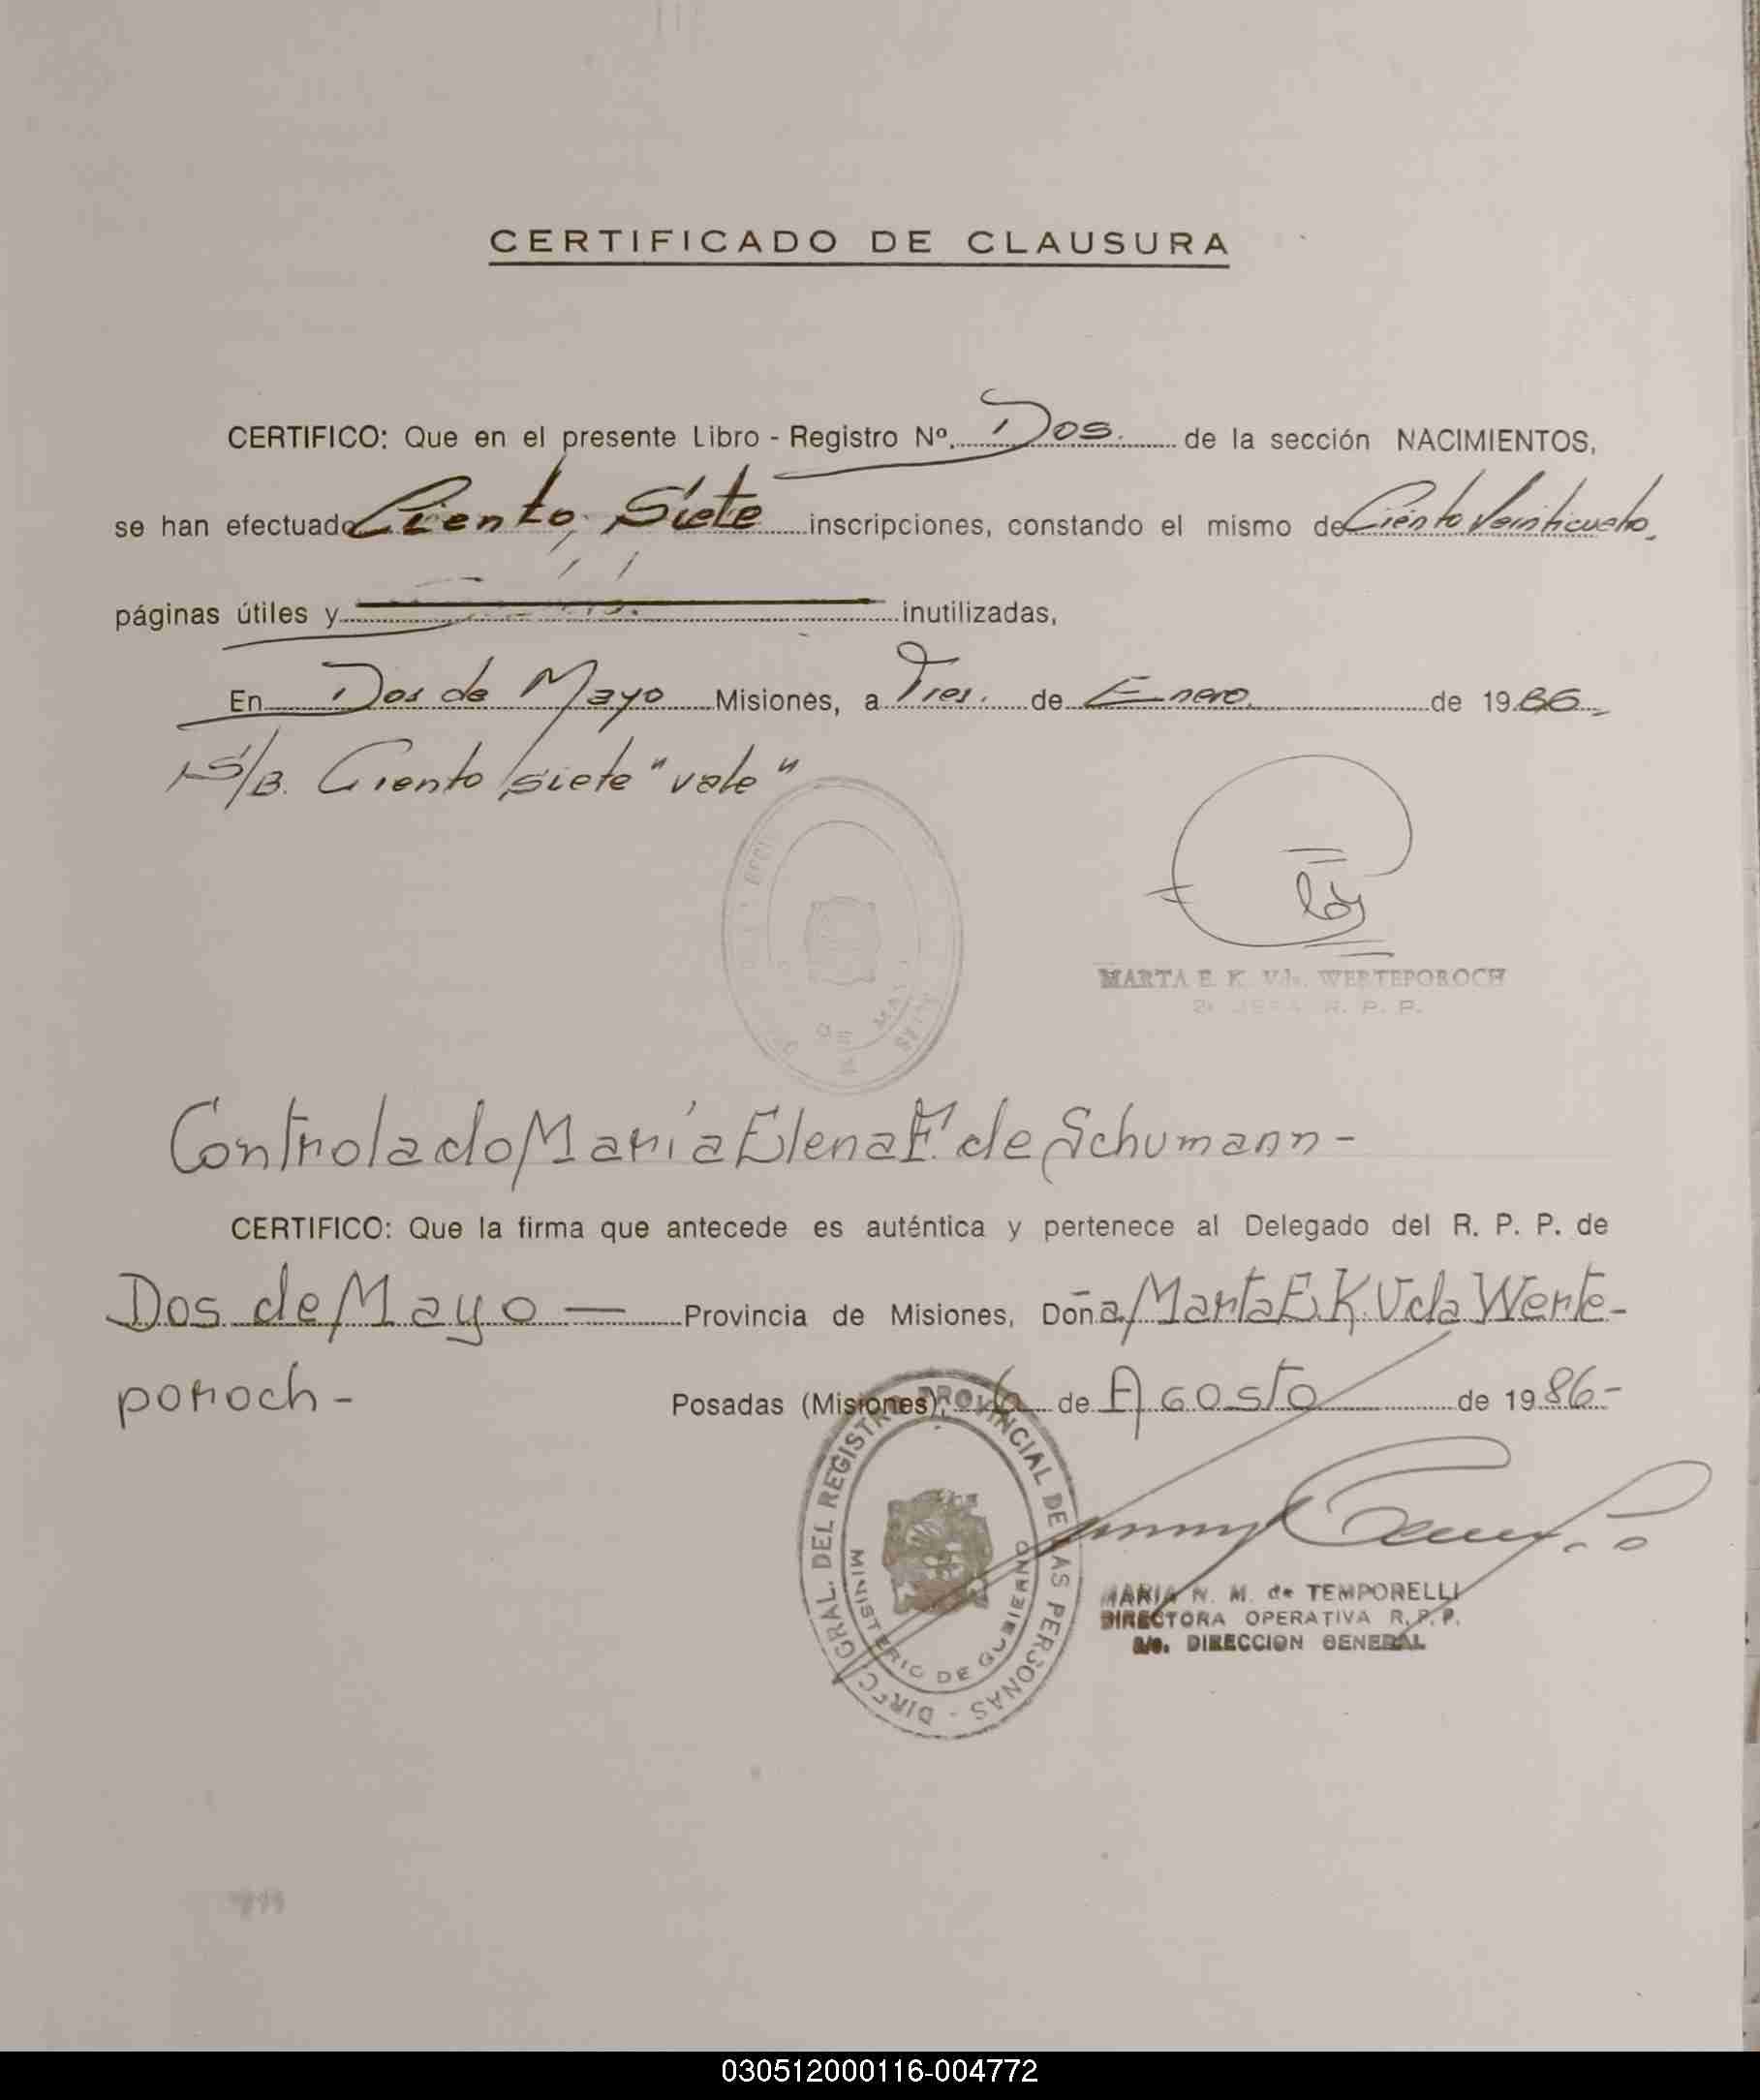 CERTIFICADO DE CLAUSURA
CERTIFICO: Que en el presente Libro - Registro Nº. Dos. de la sección NACIMIENTOS,
se han efectuado Ciento, Siete inscripciones, constando el mismo de Ciento Veinticuatro
páginas útiles y inutilizadas,
En Dos de Mayo Misiones, a Tres. de Enero. de 1986
S/B. Ciento siete "vale"
MARTA E. K. Vda. WERTEPOROCH
R. P. P.
Controlado María Elena F. de Schumann -
CERTIFICO: Que la firma que antecede es auténtica y pertenece al Delegado del R. P. P. de
Dos de Mayo — Provincia de Misiones, Doña Marta E. K. Vda Werte-
poroch -
Posadas (Misiones), 6 de Agosto de 1986 -
DIREC. GRAL. DEL REGISTRO PROVINCIAL DE LAS PERSONAS -
MINISTERIO DE GOBIERNO
MARIA N. M. de TEMPORELLI
DIRECTORA OPERATIVA R. P. P.
a/c. DIRECCION GENERAL
030512000116-004772